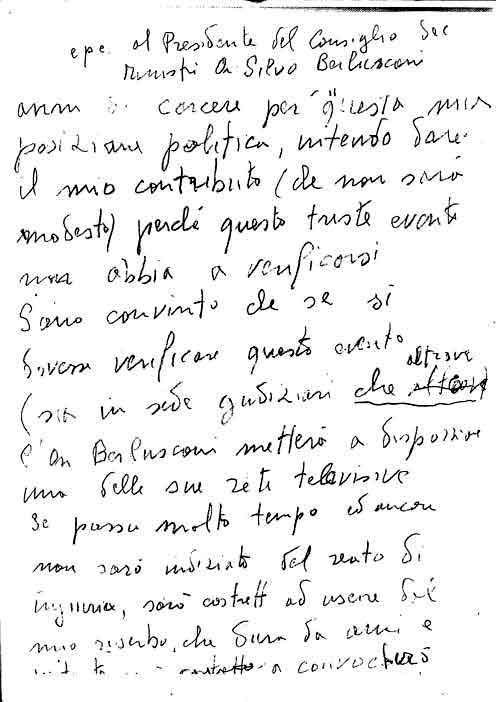 e p.c. al Presidente del Consiglio dei
Ministri On Silvo Berlusconi
anni di carcere per questa mia
posizione politica, intendo dare
il mio contributo (che non sarà
modesto) perché questo triste evento
non abbia a verificarsi
Sono convinto che se si
dovesse verificare questo evento
(sia in sede giudiziari che altrove)
l'On Berlusconi metterà a disposizione
una delle sue reti televisive
Se passa molto tempo ed ancora
non sarò indiziato del reato di
ingiuria, sarò costrett ad uscire dal
mio riserbo, che dura da anni e
a convocherò